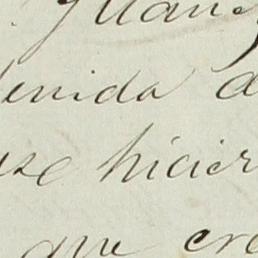 Juan
enida a
se hicier
que cre